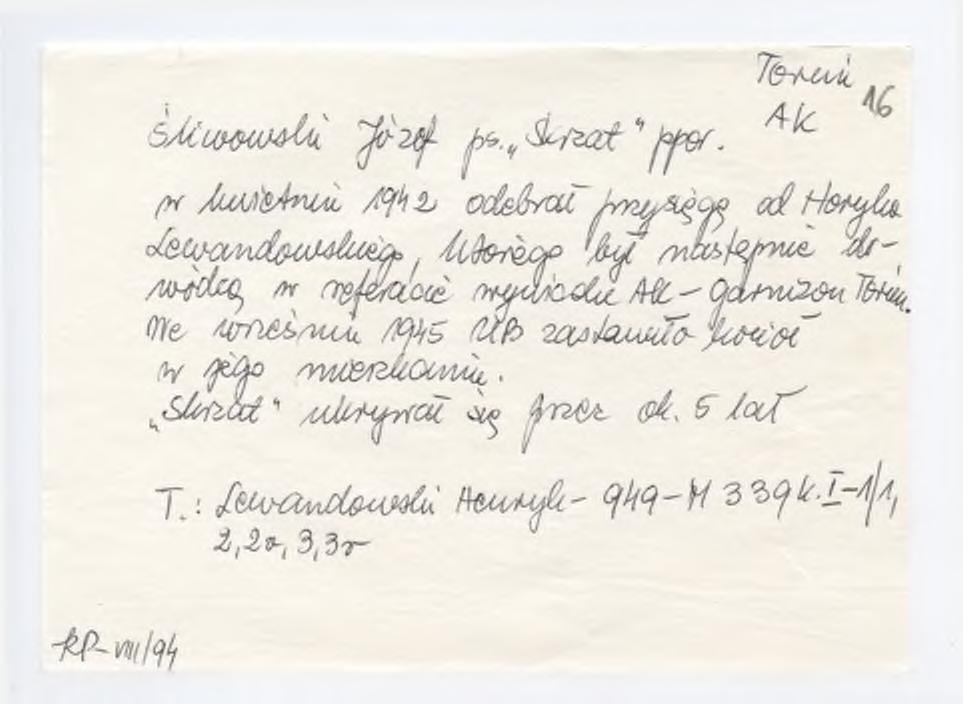 Toruń
AK
16
Śliwowski Józef ps. „Skrzat" ppor.
w kwietniu 1942 odebrał przysięgę od Henryka
Lewandowskiego, którego był następnie do-
wódcą w referacie wywiadu AK – garnizon Toruń.
We wrześniu 1945 UB zastawiło kocioł
w jego mieszkaniu.
„Skrzat" ukrywał się przez ok. 5 lat
T.: Lewandowski Henryk – 949 – M 339 k. I – 1/1,
2, 2v, 3, 3v
RP – VIII/94